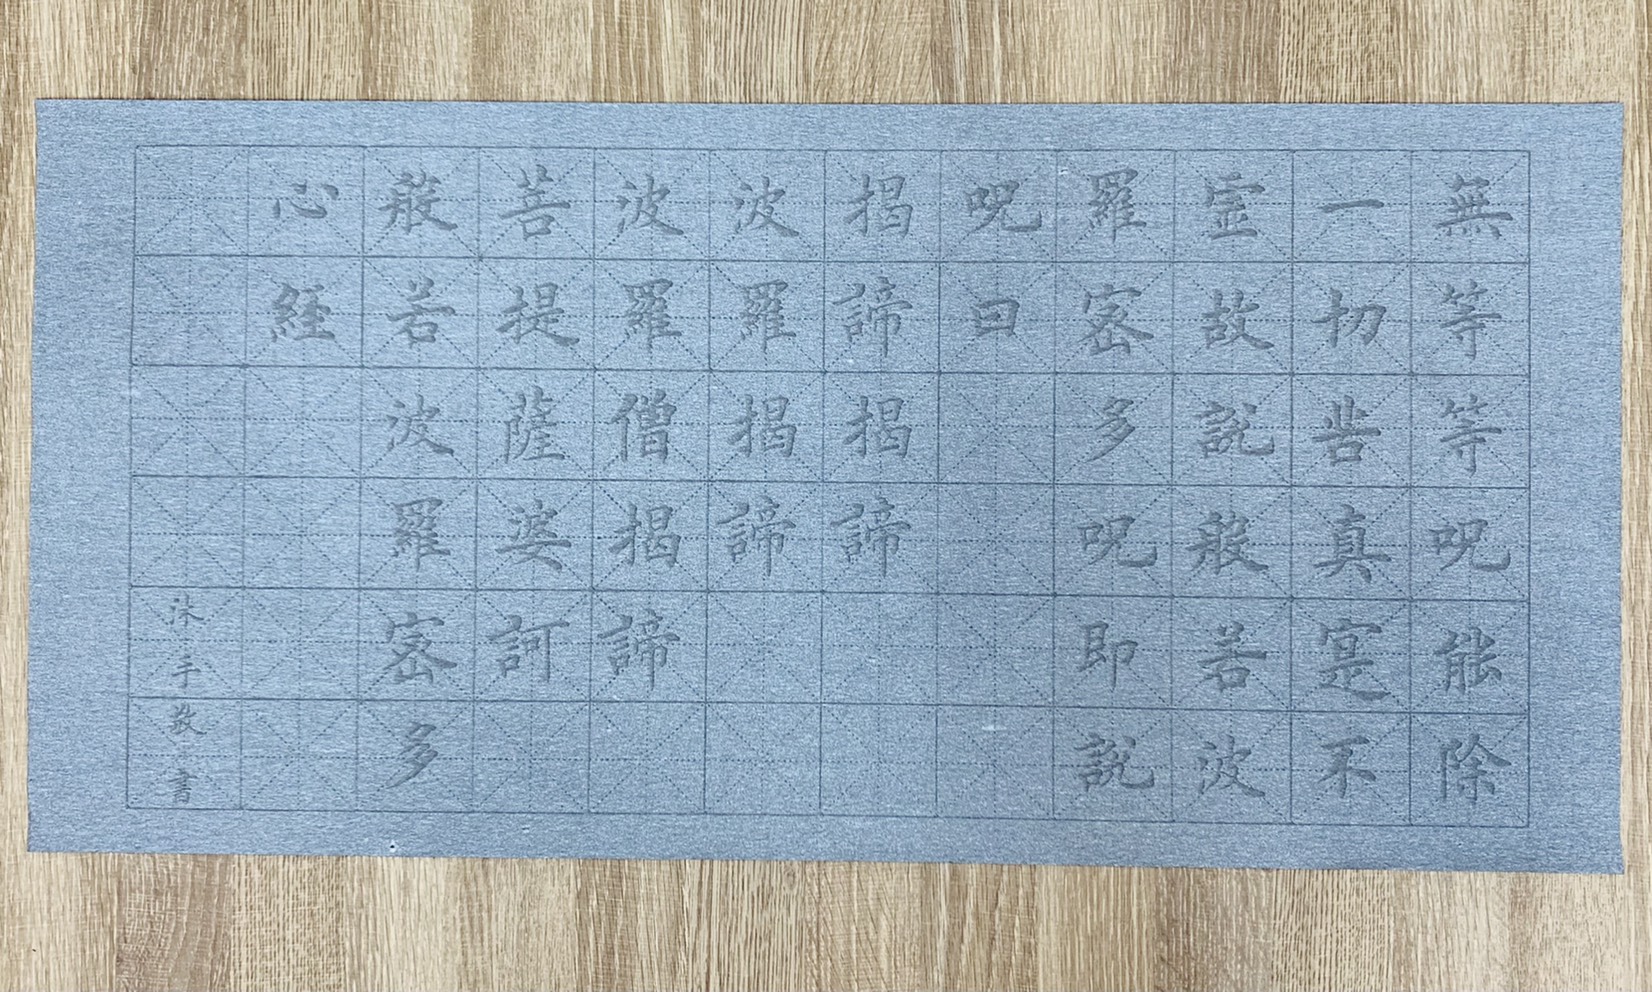 無等等呪能除
一切苦真寔不
虛故說般若波
羅蜜多呪即說
呪曰
揭諦揭諦
波羅揭諦
波羅僧揭諦
菩提薩婆訶
般若波羅蜜多
心經
沐手敬書